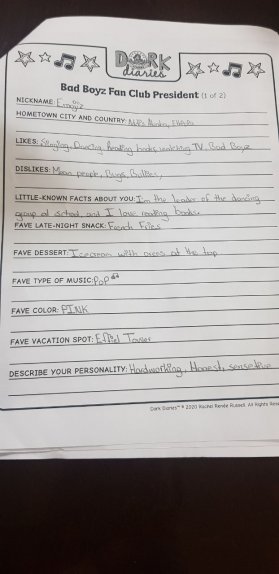 DORK
diaries
Bad Boyz Fan Club President (1 of 2)
NICKNAME:
HOMETOWN CITY AND COUNTRY:
LIKES: Singing, Dancing, Reading books, watching TV, Bad Boyz
DISLIKES: Mean people, Bugs, Bullies,
LITTLE-KNOWN FACTS ABOUT YOU: I'm the leader of the dancing
group at school and I love reading books.
FAVE LATE-NIGHT SNACK: French Fries
FAVE DESSERT: Icecream with oreos at the top
FAVE TYPE OF MUSIC: POP
FAVE COLOR: PINK
FAVE VACATION SPOT: Eiffel Tower
DESCRIBE YOUR PERSONALITY: Hardworking, Honest, sensetive
Dork Diaries™ © 2020 Rachel Renée Russell. All Rights Rese